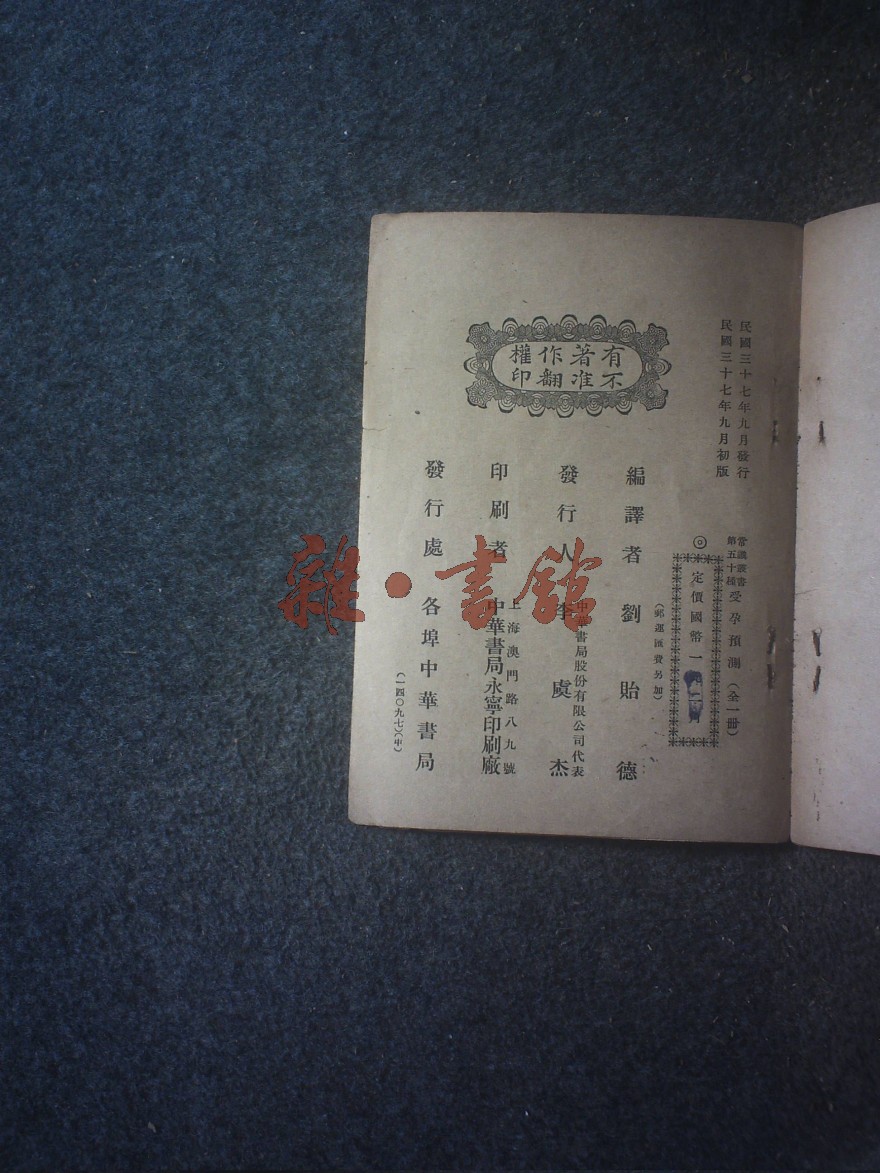 民國三十七年九月發行
民國三十七年九月初版
常識叢書
第五十種
受孕預測(全一冊)
◎定價國幣一
(郵運匯費另加)
有著作權
不准翻印
編譯者 劉貽德
發行人 李虞杰
中華書局股份有限公司代表
印刷者 中華書局永寧印刷廠
上海澳門路八九號
發行處 各埠中華書局
(一四〇九七)(中)
雜·書館